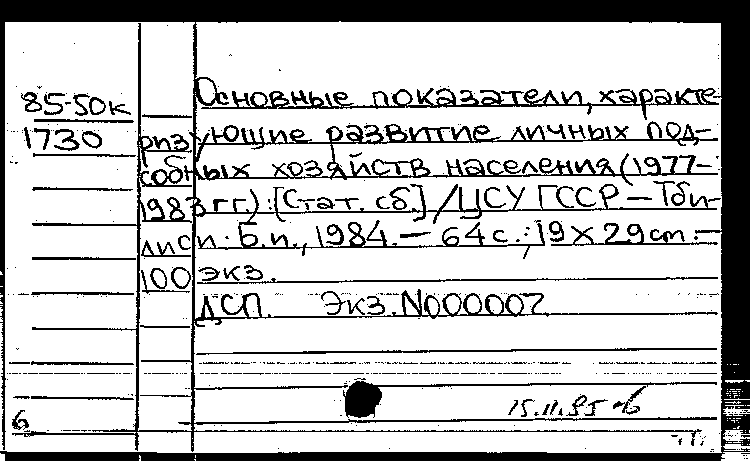 85-50к
1730
Основные показатели, характе-
ризующие развитие личных под-
собных хозяйств населения (1977-
1983 гг.) : [Стат. сб.] / ЦСУ ГССР. – Тби-
лиси : Б.и., 1984. – 64 с. ; 19 х 29 cm. –
100 экз.
ДСП. Экз. N000007
15.11.85
6